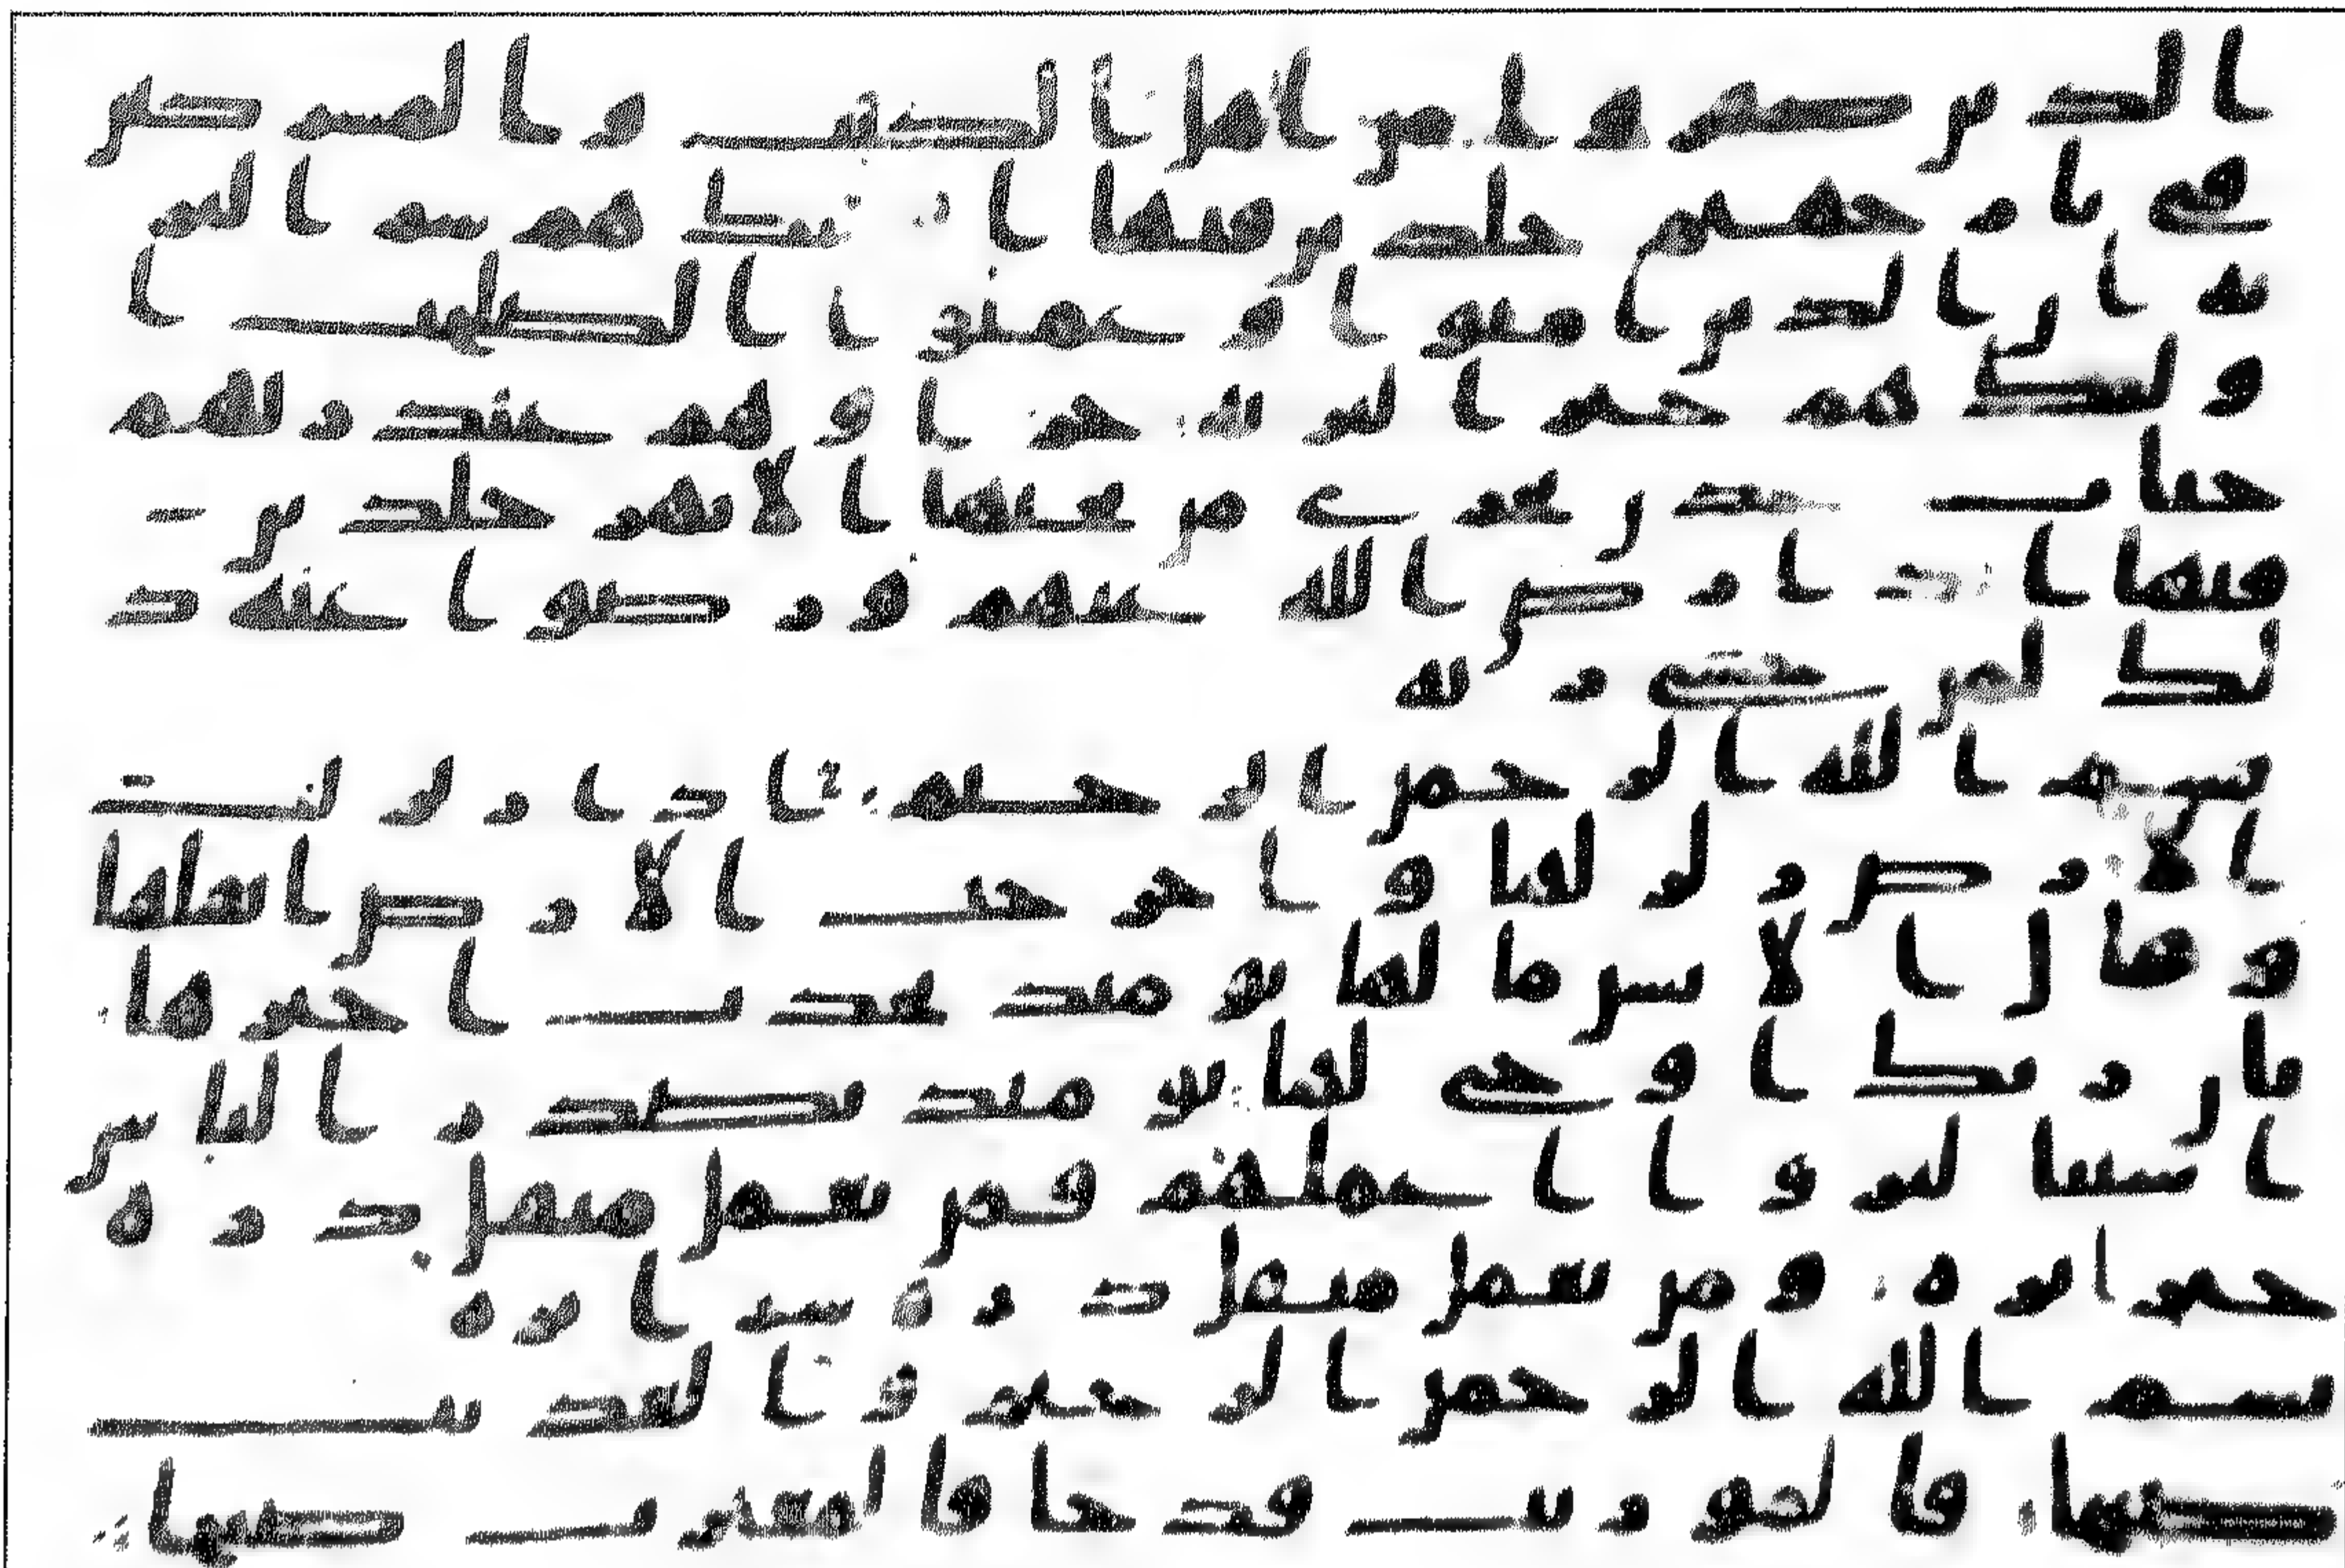 الذين كفروا من اهل الكتب والمشركين
في نار جهنم خلدين فيها اولئك هم شر البر
ية ان الذين امنوا وعملوا الصلحت ا
ولئك هم خير البرية جزاوهم عند ربهم
جنات عدن تجري من تحتها الانهر خلدين
فيها ابدا رضي الله عنهم ورضوا عنه ذ
لك لمن خشي ربه
بسم الله الرحمن الرحيم اذا زلزلت
الارض زلزلها واخرجت الارض اثقلها
وقال الانسن ما لها يومئذ تحدث اخبرها
بان ربك اوحى لها يومئذ يصدر الناس
اشتتا ليروا اعملهم فمن يعمل مثقل ذره
خيرا يره ومن يعمل مثقل ذره شرا يره
بسم الله الرحمن الرحيم والعديت
ضبحا فالموريت قدحا فالمغيرت صبحا